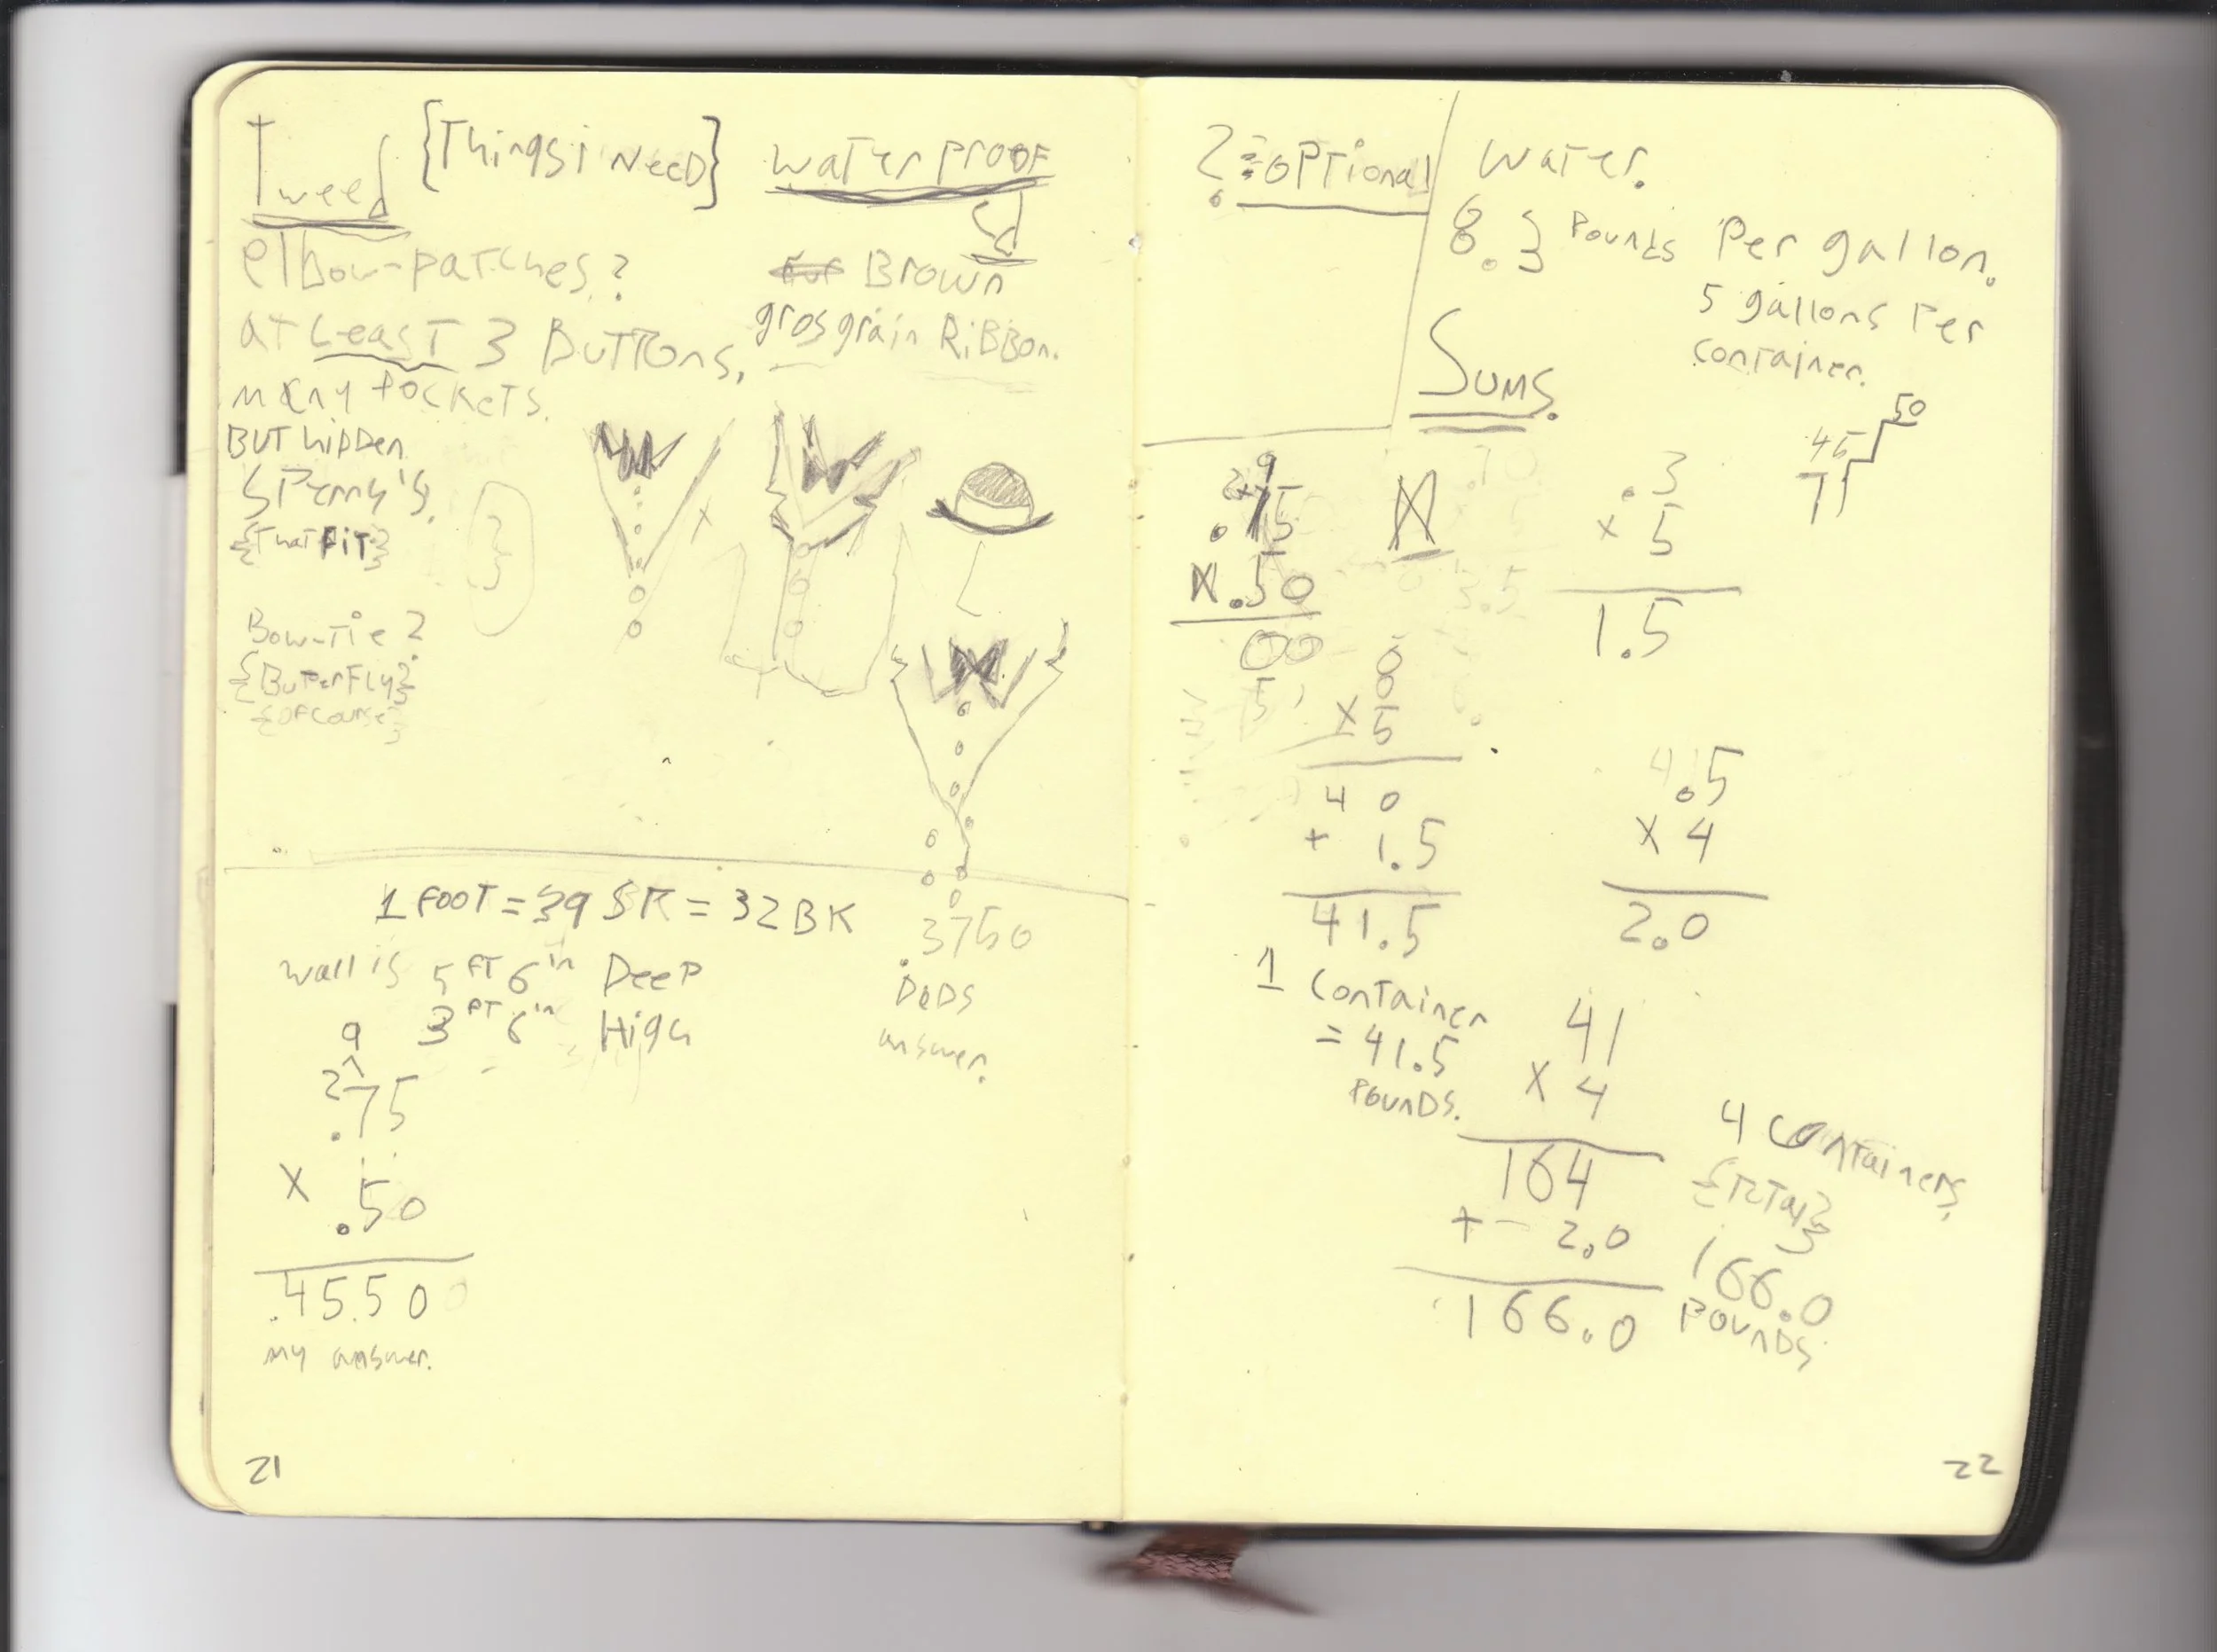 Tweed
{Things i NeeD}
waterproof
elbow-patches?
at Least 3 Buttons,
many pockets.
BUT hidden
Sperry's,
{That FiT}
Brown
grosgrain RiBBon.
Bow-Tie?
{ButerFly}
{OF course}
1 FOOT = 39 SK = 32 BK
wall is 5 FT 6 in Deep
3 FT 6 in High
9
2
.75
x .50
.4550
my answer.
.3750
DADS
answer.
21
? = optional
water.
8.3 Pounds Per gallon.
5 gallons Per
container.
Sums.
50
45
71
9
2
.75
x .50
00
5
.3
x 5
1.5
8
x 5
40
+ 1.5
41.5
.5
x 4
2.0
1 container
= 41.5
Pounds.
41
x 4
164
+ 2.0
166.0
4 containers
{Total}
166.0
Pounds
22